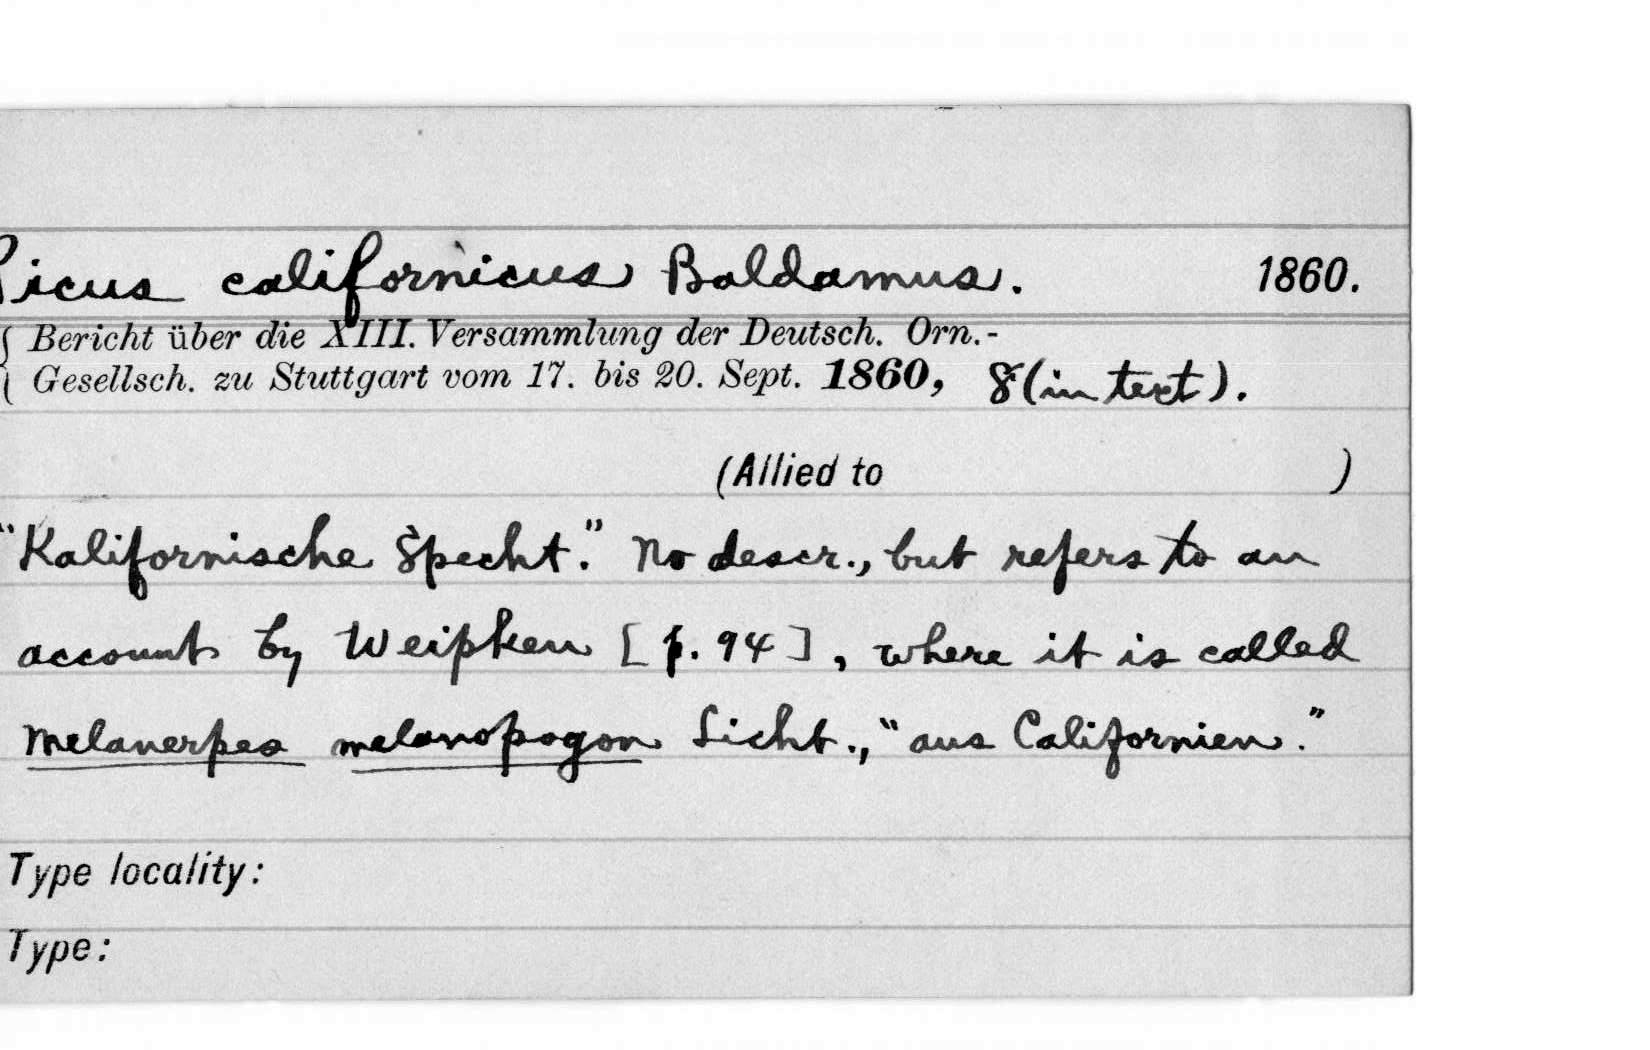 Picus californicus Baldamus. 1860.
Bericht über die XIII. Versammlung der Deutsch. Orn.-
Gesellsch. zu Stuttgart vom 17. bis 20. Sept. 1860, 8 (in text).
(Allied to )
"Kalifornische Specht." No descr., but refers to an
account by Weipken [p. 94], where it is called
Melanerpes melanopogon Licht., "aus Californien."
Type locality:
Type: